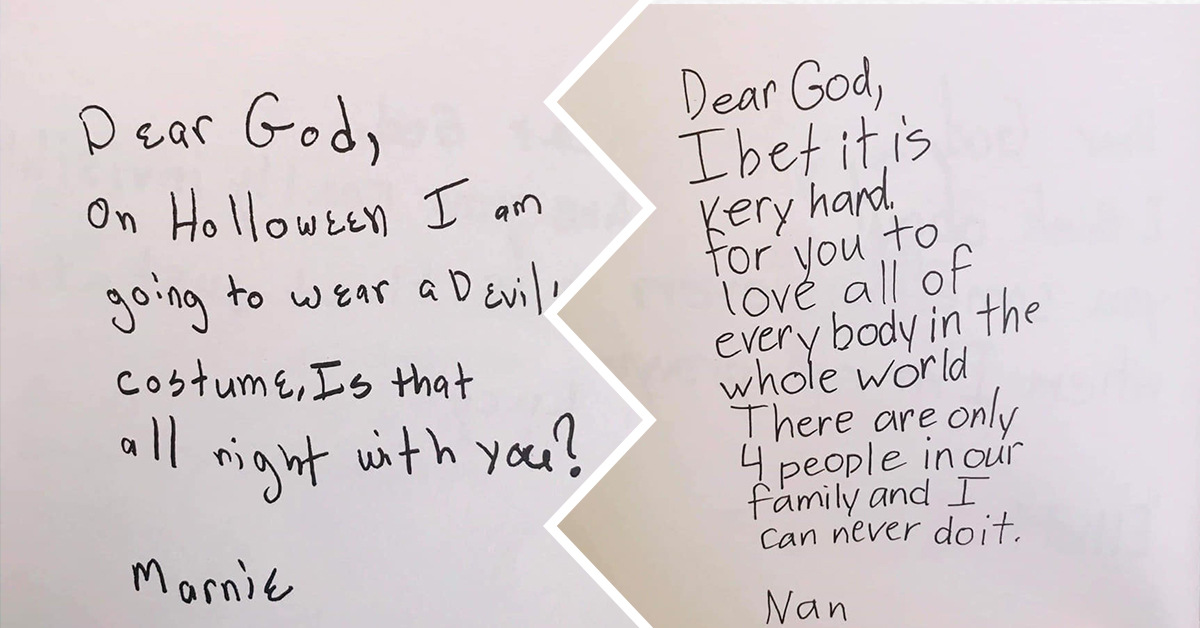 Dear God,
On Holloween I am
going to wear a Devil'
costume, Is that
all right with you?
Marnie
Dear God,
I bet it is
very hard.
for you to
love all of
every body in the
whole world
There are only
4 people in our
family and I
can never do it.
Nan